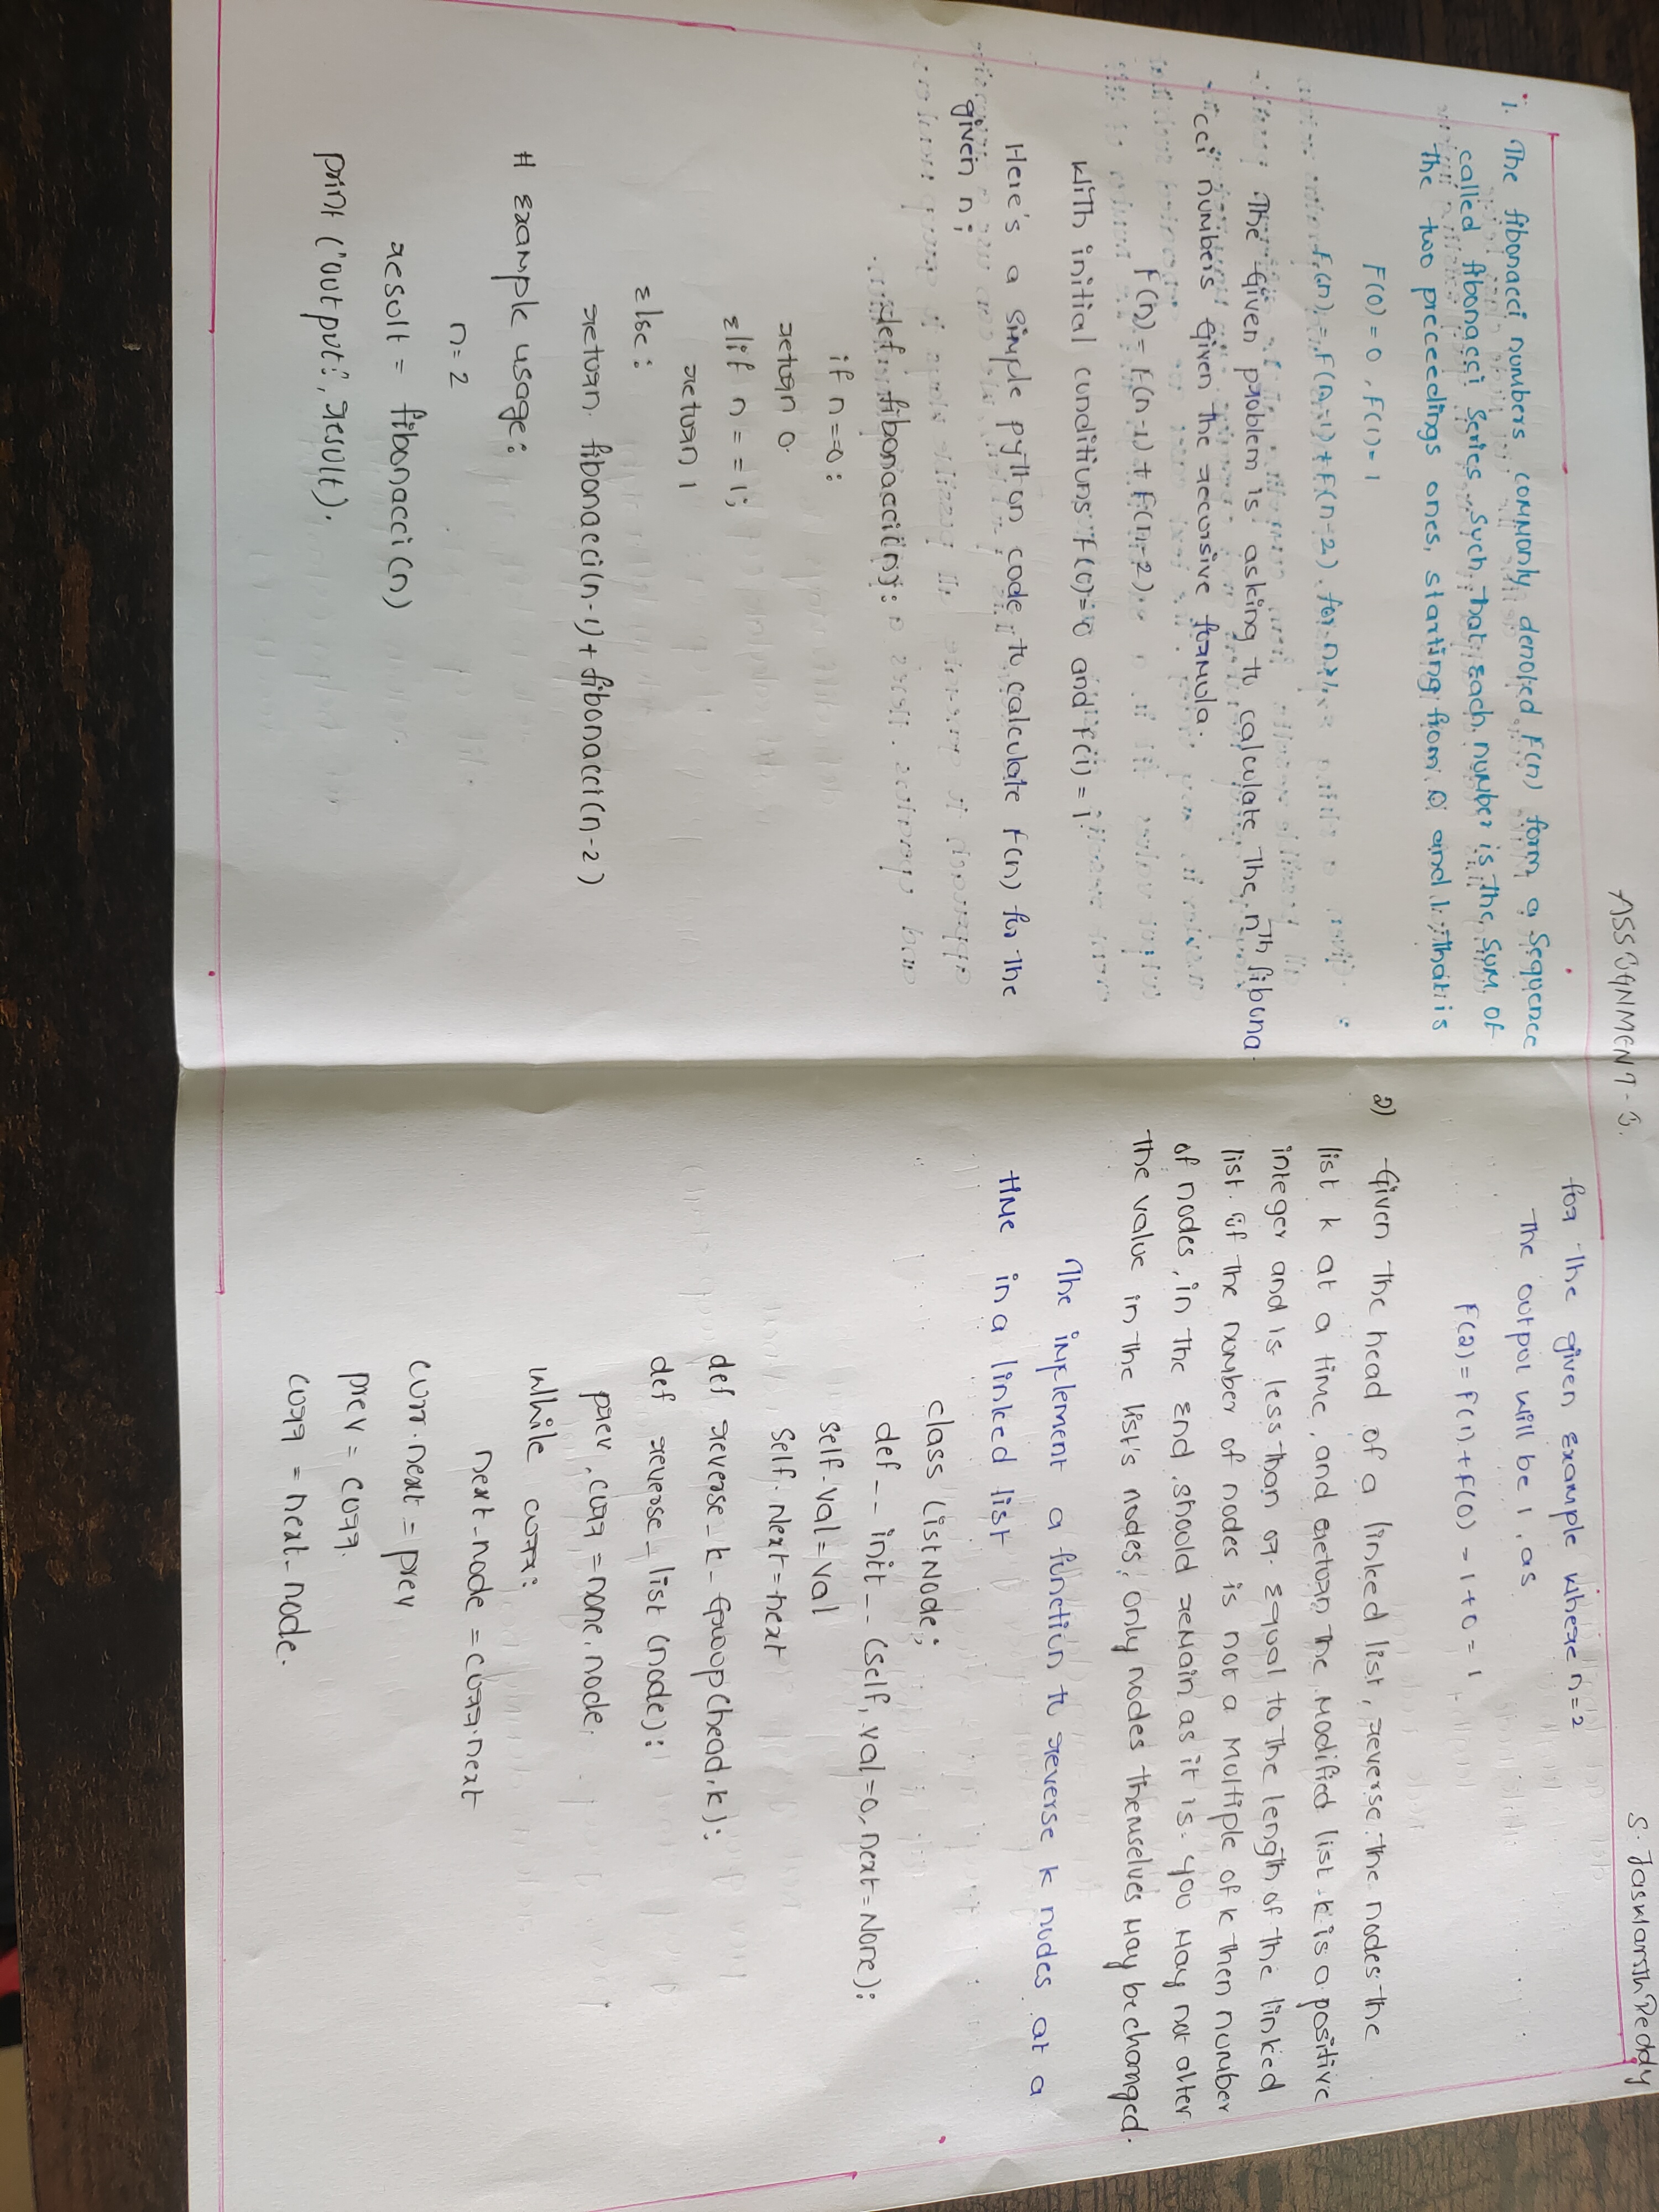 ASSIGNMENT-3.
S. Jaswanth Reddy
1. The fibonacci numbers commonly denoted F(n) form a sequence
called fibonacci series such that each number is the sum of
the two preceedings ones, starting from 0 and 1. That is
F(0) = 0, F(1) = 1
F(n) = F(n-1) + F(n-2). for n>1.
The Given problem is asking to calculate the nth fibona
cci numbers Given the recursive formula.
F(n) = F(n-1) + F(n-2).
with initial conditions F(0)=0 and F(1) = 1.
Here's a simple python code to calculate F(n) for the
given n;
def fibonacci(n):
if n==0:
return 0
elif n == 1;
return 1
else:
return fibonacci(n-1) + fibonacci(n-2)
# Example usage:
n=2
result = fibonacci(n)
print ('output:', result).
for the given example where n=2
The output will be 1. as
F(2) = F(1) + F(0) = 1+0 = 1
2) Given the head of a linked list, reverse the nodes the
list k at a time, and return the modified list. k is a positive
integer and is less than or equal to the length of the linked
list. if the number of nodes is not a multiple of k then number
of nodes, in the end should remain as it is. you may not alter
the value in the list's nodes, only nodes themselves may be changed.
The implement a function to reverse k nodes at a
time in a linked list
class ListNode;
def -- init -- (self, val=0, next=None):
self.val=val
self.next=next
def reverse-k-Group(head,k):
def reverse-list (node):
prev, curr = none, node.
while curr:
next-node = curr.next
curr.next = prev
prev = curr.
curr = next-node.